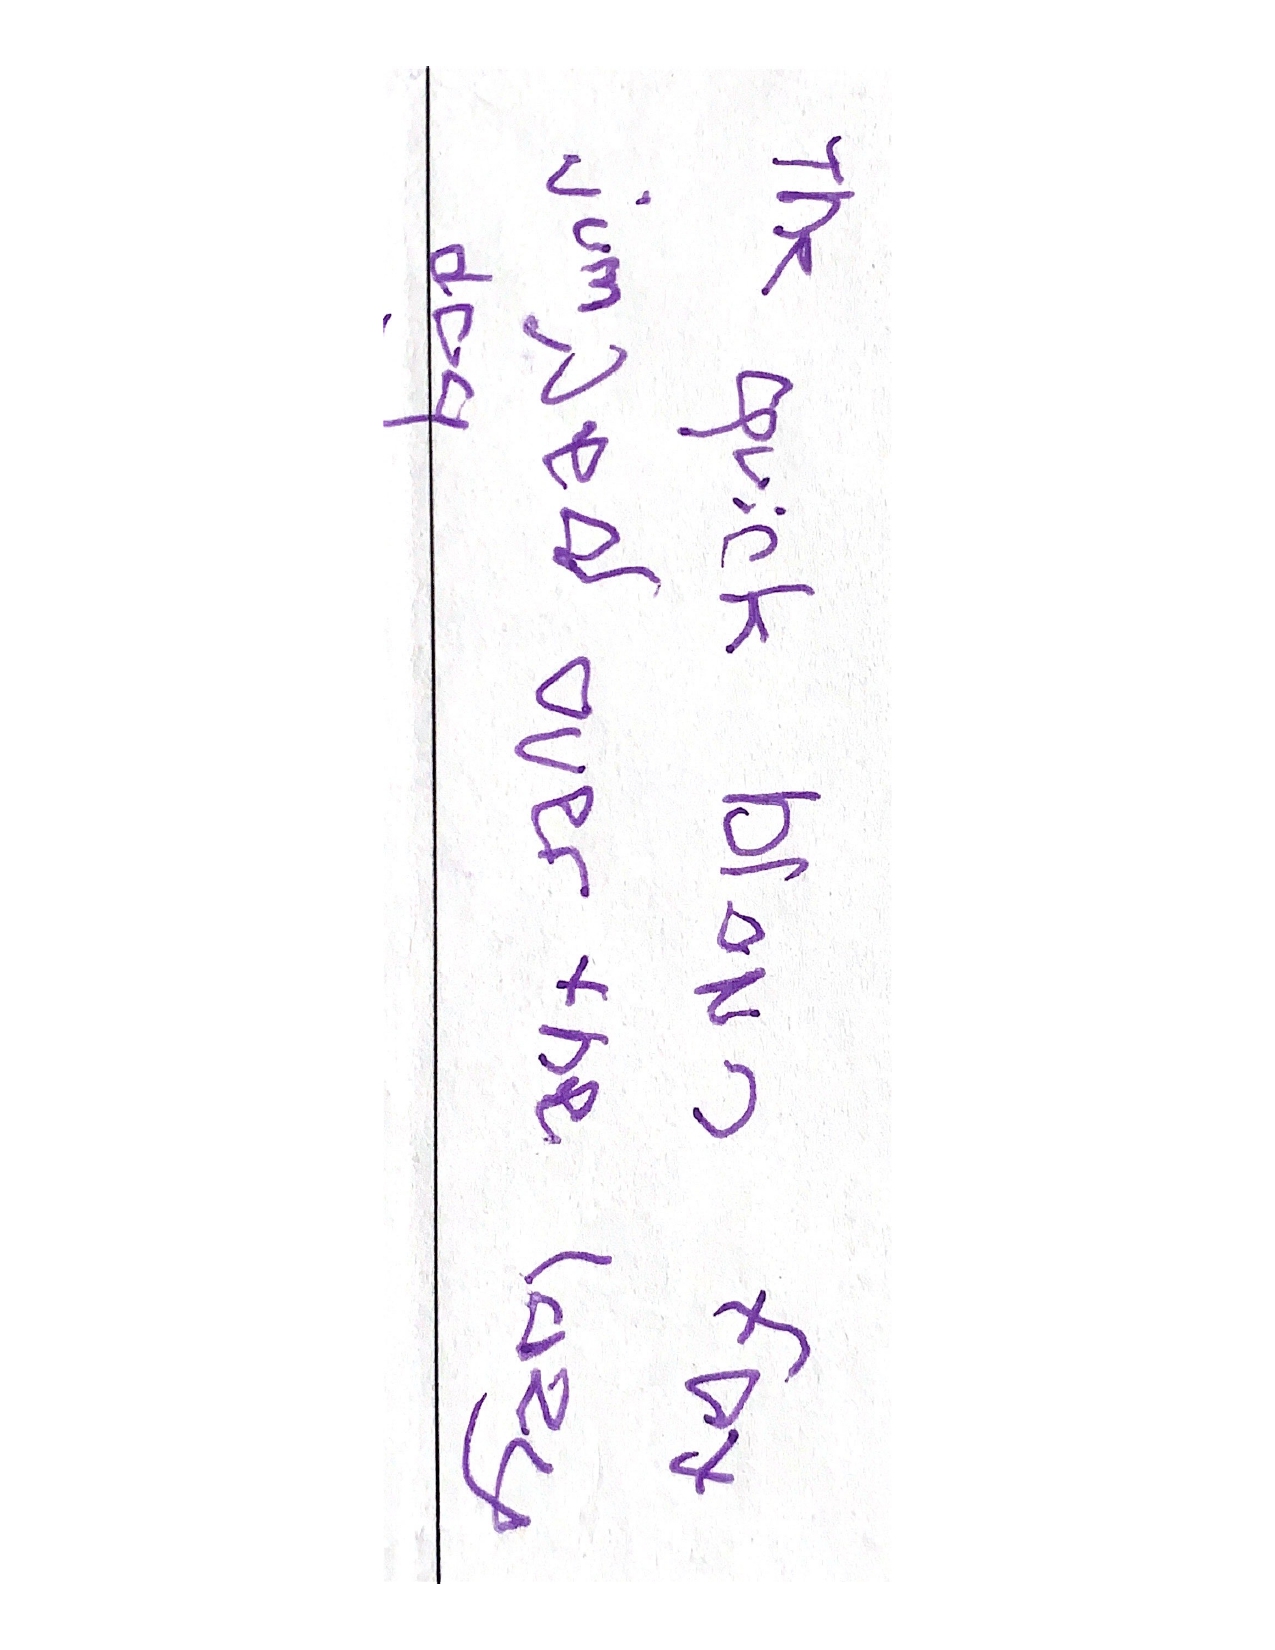 The quick brown fox
jumped over the lazy
dog